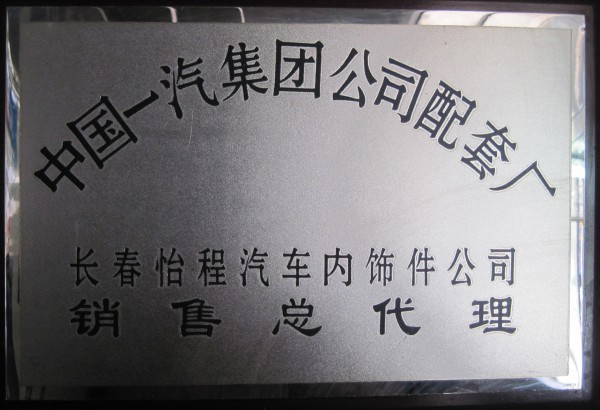 中国一汽集团公司配套厂
长春怡程汽车内饰件公司
销售总代理